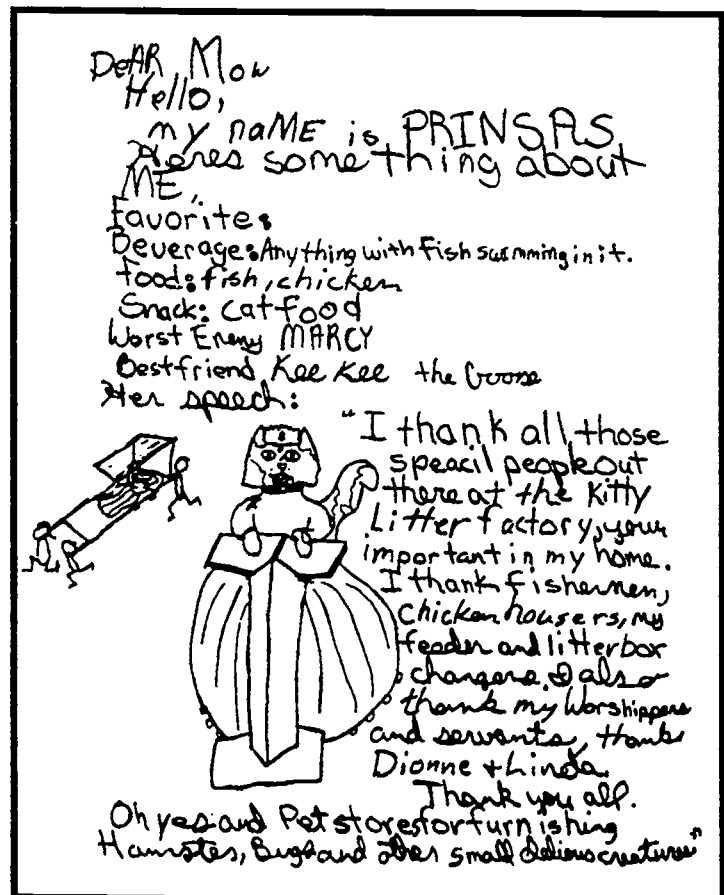 DeAR Mow
Hello,
my naME is PRINSAS
Heres something about
ME.
Favorite:
Beverage: Anything with fish swimming in it.
food: fish, chicken
Snack: catfood
Worst Enemy MARCY
Bestfriend Kee Kee the Goose
Her speech:
"I thank all those
speacil people out
there at the Kitty
Litter factory, your
important in my home.
I thank fishermen,
chicken housers, my
feeder and litterbox
changers. I also
thank my Worshippers
and servants, thank
Dionne + Linda.
Thank you all.
Oh yes and Pet stores for furnishing
Hamstes, Bugs and other small delious creatures"